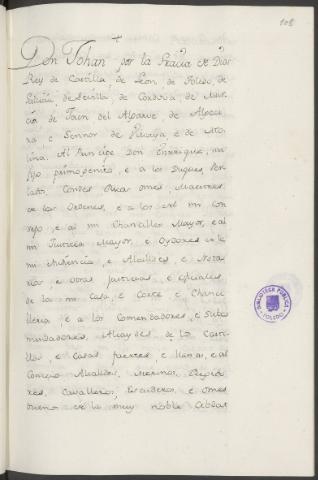 108
Don Johan por la Gracia de Dios
Rey de Castilla, de Leon, de Toledo, de
Galicia, de Sevilla, de Cordova, de Mur
cia, de Jaen, del Algarve, de Algeci
ra, e Sennor de Vizcaya e de Mo
lina. Al Principe Don Enrrique, mi
fijo primogenito, e a los Duques, Per
lados, Condes, Ricos omes, Maestres
de las Ordenes, e a los del mi con
sejo, e al mi Chanciller Mayor, e al
mi Justicia Mayor, e Oydores de la
mi Audiencia, e Alcalles, e Nota
rios, e otras justicias, e oficiales
de la mi Casa, e Corte e Chanci
lleria, e a los Comendadores, e Subco
mendadores, Alcaydes de los Casti
llos, e Casas fuertes, e llanas, e al
Concejo Alcalldes, Merinos, Regido
res, Cavalleros, Escuderos, e omes
buenos de la muy noble Cibdat
BIBLIOTECA PUBLICA
TOLEDO